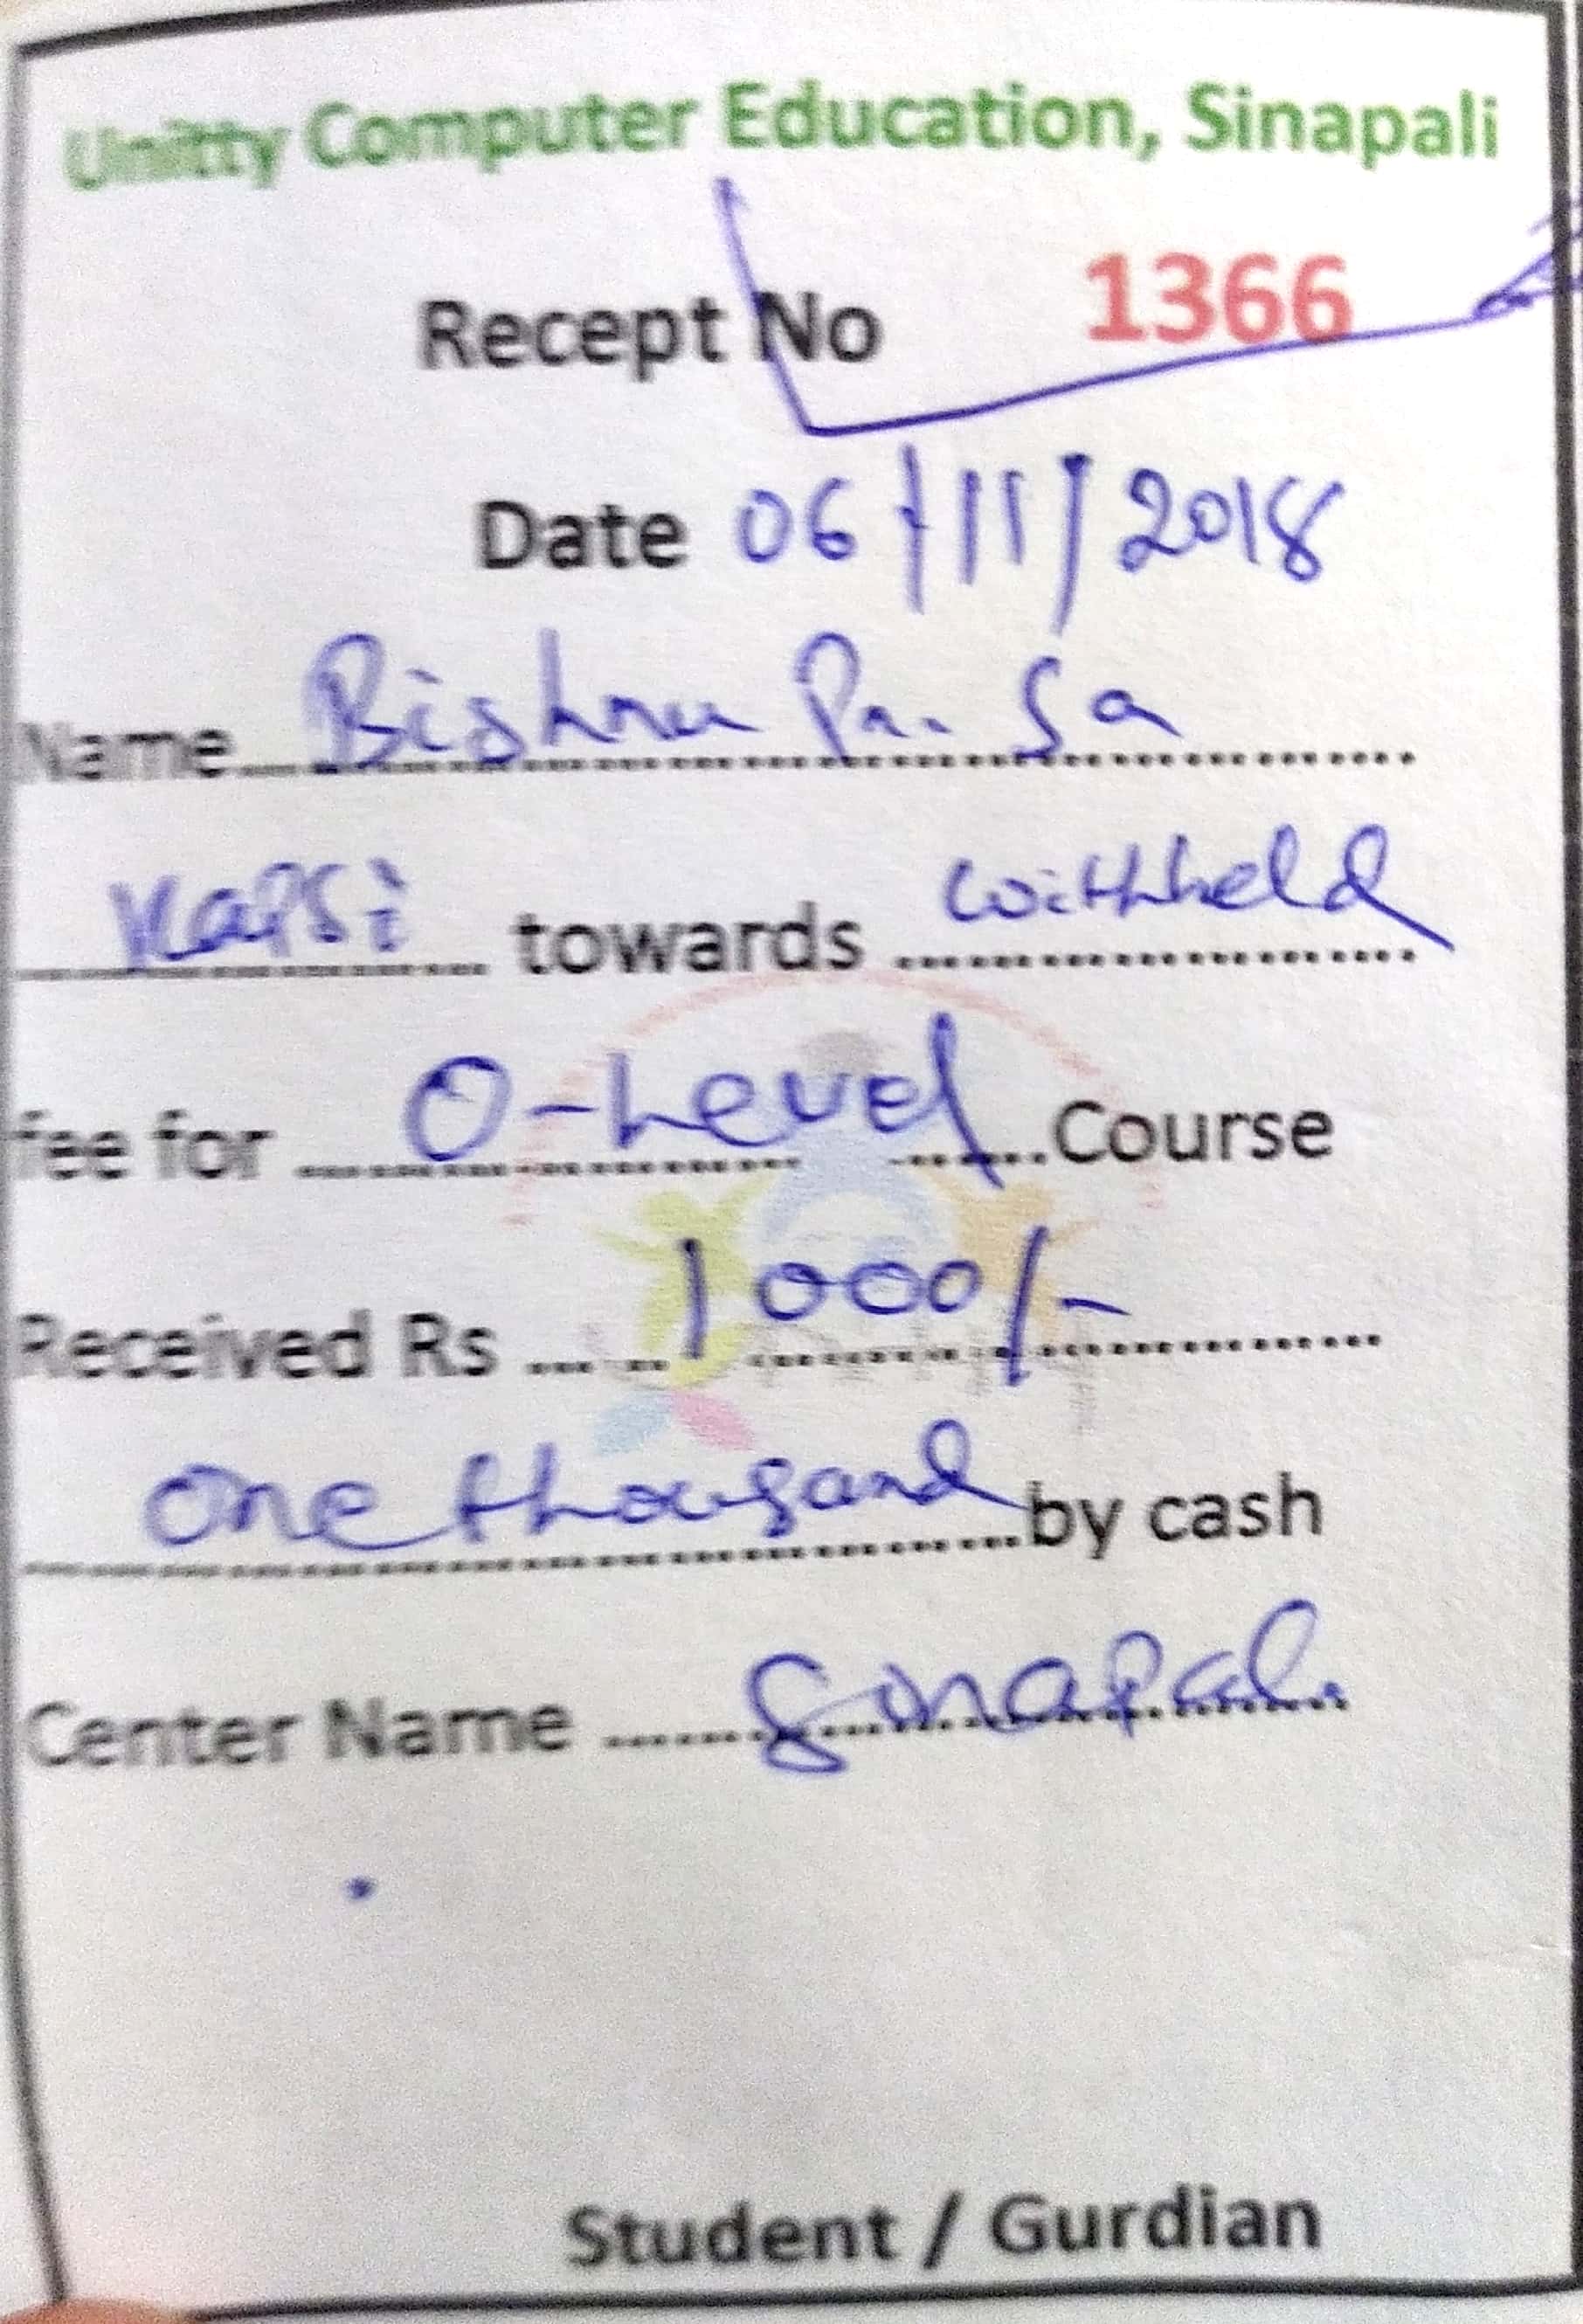 Unitty Computer Education, Sinapali
Recept No 1366
Date 06/11/2018
Name Bishnu Pr. Sa
Kapsi towards withheld
fee for O-Level Course
Received Rs 1000/-
one thousand by cash
Center Name Sinapali
Student / Gurdian